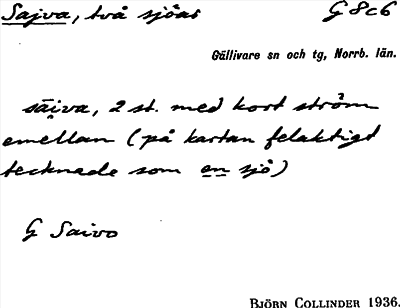 Sajva, två sjöar G8c6
Gällivare sn och tg, Norrb. län.
säi̯va, 2 st. med kort ström
emellan (på kartan felaktigt
tecknade som en sjö)
G Saivo
BJÖRN COLLINDER 1936.